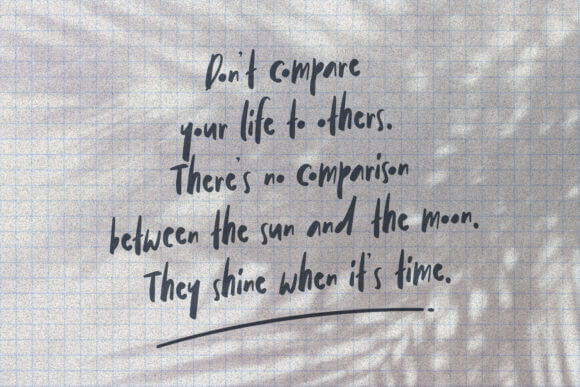 Don't compare
your life to others.
There's no comparison
between the sun and the moon.
They shine when it's time.